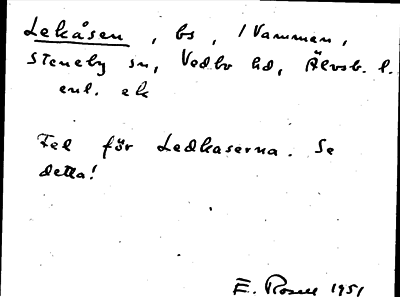 Lekåsen, bs, i Vammen,
Steneby sn, Vedbo hd, Älvsb. l.
enl. ek
Fel för Ledkaserna. Se
detta!
E. Rosell 1951